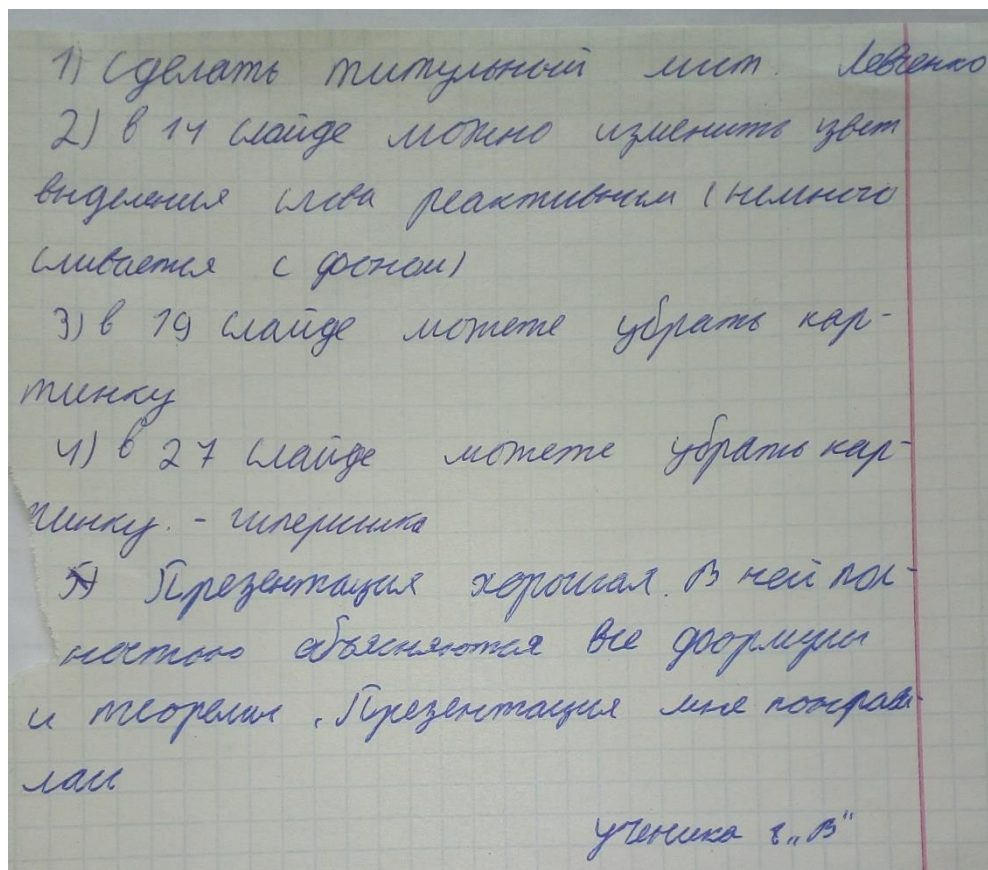 1) Сделать титульный лист. Левченко
2) в 14 слайде можно изменить цвет
выделения слова реактивным (немного
сливается с фоном)
3) в 19 слайде можете убрать кар-
тинку
4) в 27 слайде можете убрать кар-
тинку. - гиперссылка
Презентация хорошая. В ней пол-
ностью объясняются все формулы
и теоремы. Презентация мне понрави-
лась
ученика 8 „В"